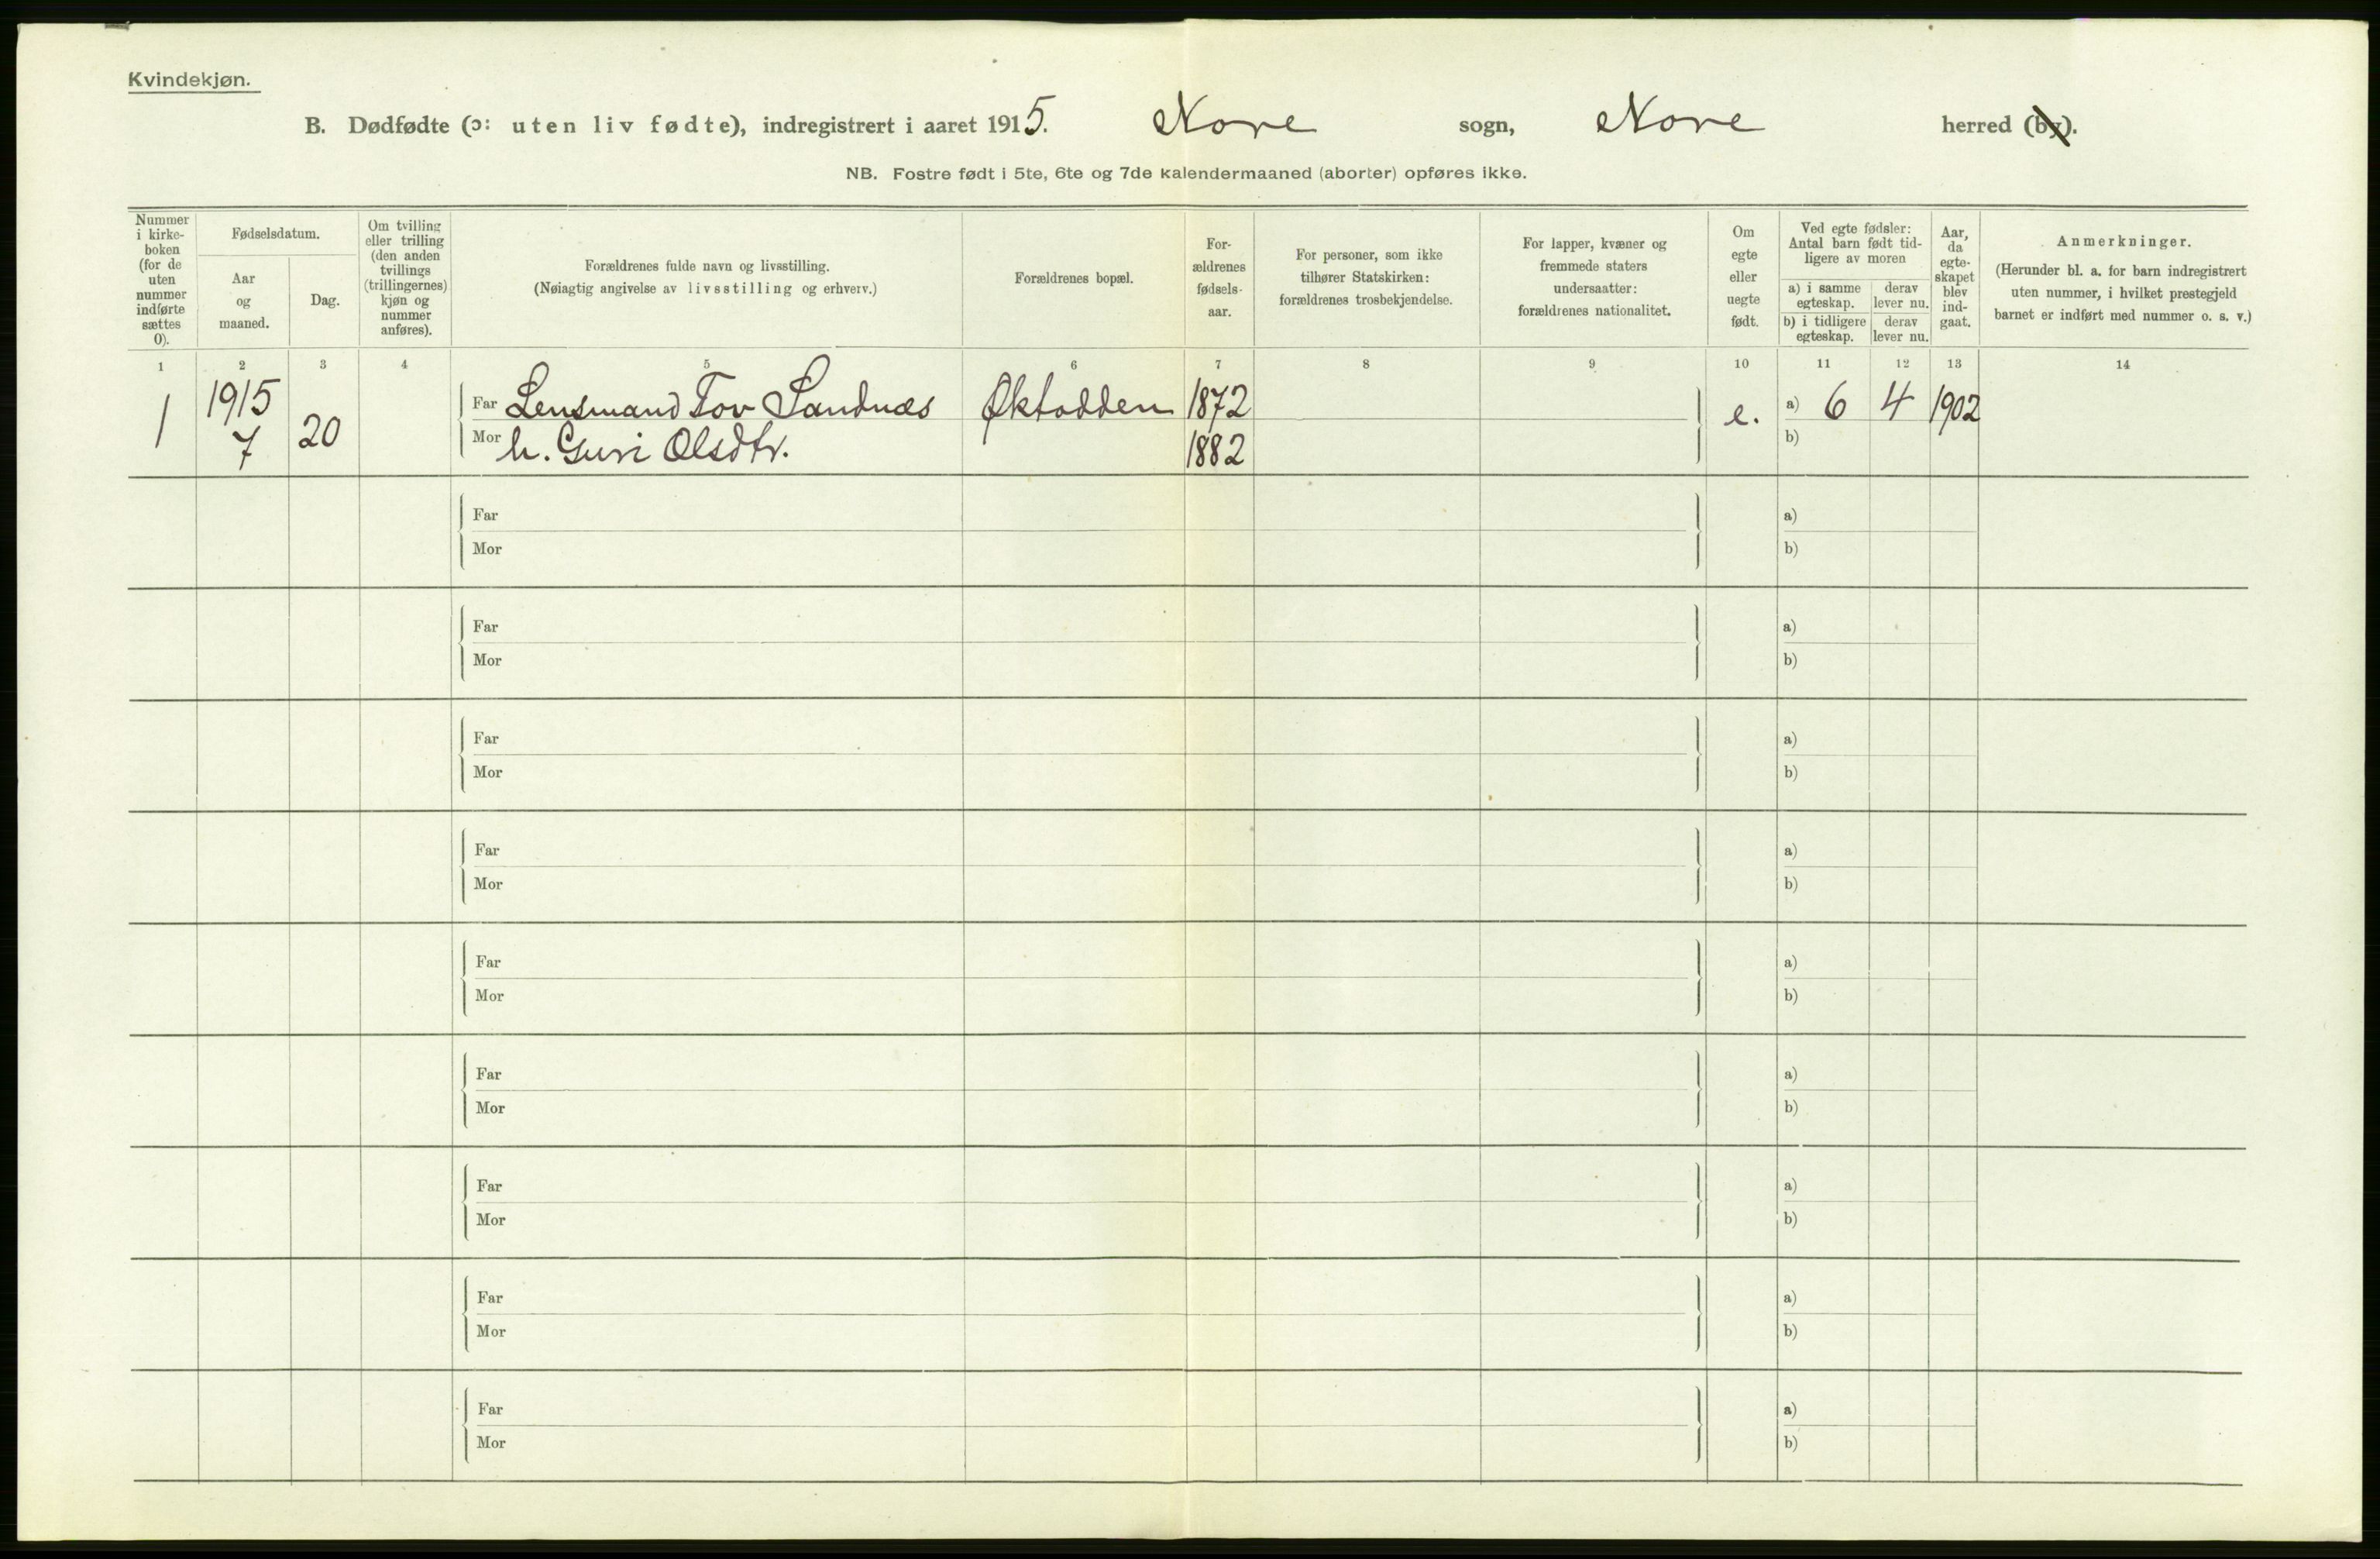 Kvindekjøn.
B. Dødfødte (ɔ: uten liv fødte), indregistrert i aaret 1915. Nore sogn, Nore herred (by).
NB. Fostre født i 5te, 6te og 7de kalendermaaned (aborter) opføres ikke.
Nummer i kirke-boken (for de uten nummer indførte sættes 0).
Fødselsdatum.
Aar og maaned.
Dag.
Om tvilling eller trilling (den anden tvillings (trillingernes) kjøn og nummer anføres).
Forældrenes fulde navn og livsstilling.
(Nøiagtig angivelse av livsstilling og erhverv.)
Forældrenes bopæl.
For-ældrenes fødsels-aar.
For personer, som ikke tilhører Statskirken: forældrenes trosbekjendelse.
For lapper, kvæner og fremmede staters undersaatter: forældrenes nationalitet.
Om egte eller uegte født.
Ved egte fødsler: Antal barn født tid-ligere av moren
a) i samme egteskap.
derav lever nu.
b) i tidligere egteskap.
derav lever nu.
Aar, da egte-skapet blev ind-gaat.
Anmerkninger.
(Herunder bl. a. for barn indregistrert uten nummer, i hvilket prestegjeld barnet er indført med nummer o. s. v.)
1 2 3 4 5 6 7 8 9 10 11 12 13 14
1 1915 7 20 Far Lensmand Tov Sandnæs Øktodden 1872 e. a) 6 4 1902
Mor h. Guri Olsdtr. 1882 b)
Far a)
Mor b)
Far a)
Mor b)
Far a)
Mor b)
Far a)
Mor b)
Far a)
Mor b)
Far a)
Mor b)
Far a)
Mor b)
Far a)
Mor b)
Far a)
Mor b)